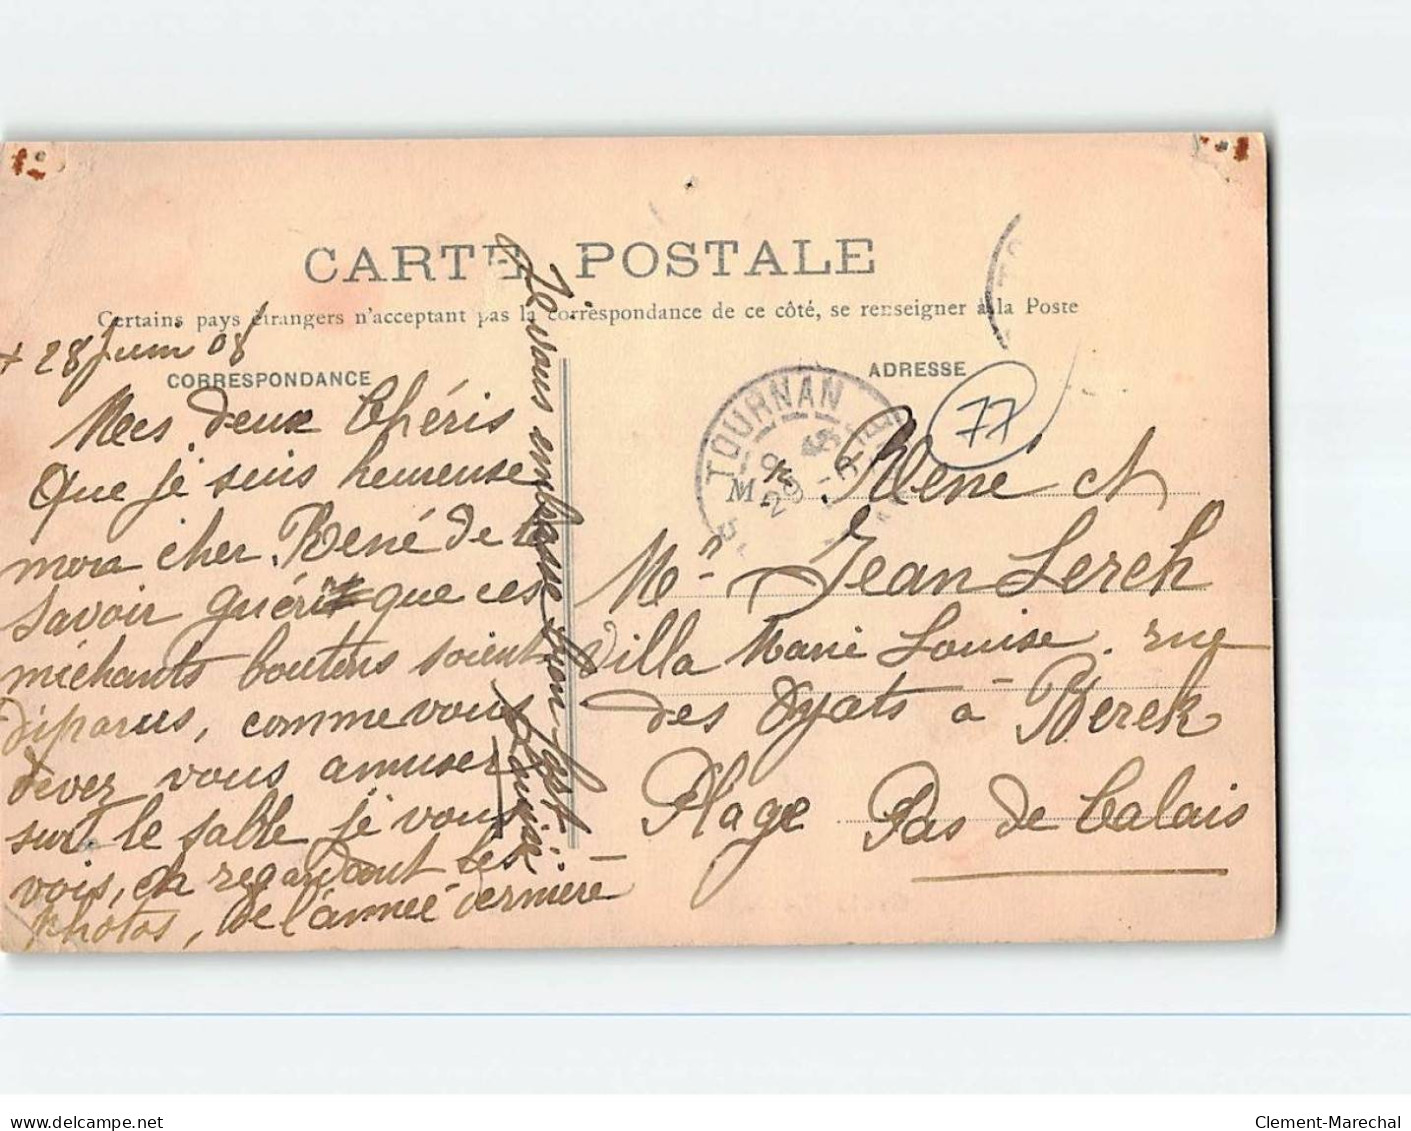 CARTE POSTALE
Certains pays étrangers n'acceptant pas la correspondance de ce côté, se renseigner à la Poste
28 Juin 08
CORRESPONDANCE
Mes deux Chéris
Que je suis heureuse
mon cher René de te
savoir guéri que ces
méchants boutons soient
disparus, comme vous
devez vous amuser
sur le sable je vous
vois, en regardant les
photos, de l'année dernière
Je vous embrasse bien fort
ADRESSE
77
TOURNAN
29
M
René et
Mr Jean Lerch
Villa Marie Louise. rue
des Oyats à Berck
Plage Pas de Calais
Clement-Marechal